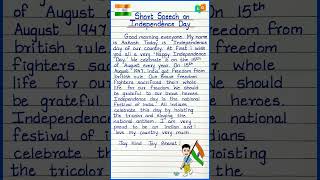 Short Speech on
Independence Day
Good morning everyone. My name
is Today is Independence
day of our country. At first I wish
you all a very "Happy Independence
Day". We celebrate it on the 15th
of August every year. On 15th
August 1947, India got freedom from
british rule. Our brave freedom
fighters sacrificed their whole
life for our freedom. We should
be grateful to our brave heroes.
Independence day is the national
festival of India. All Indians
celebrate this day by hoisting
the tricolor and singing the
national anthem. I am very
proud to be an Indian and I
love my country very much.
Jay Hind Jay Bharat!